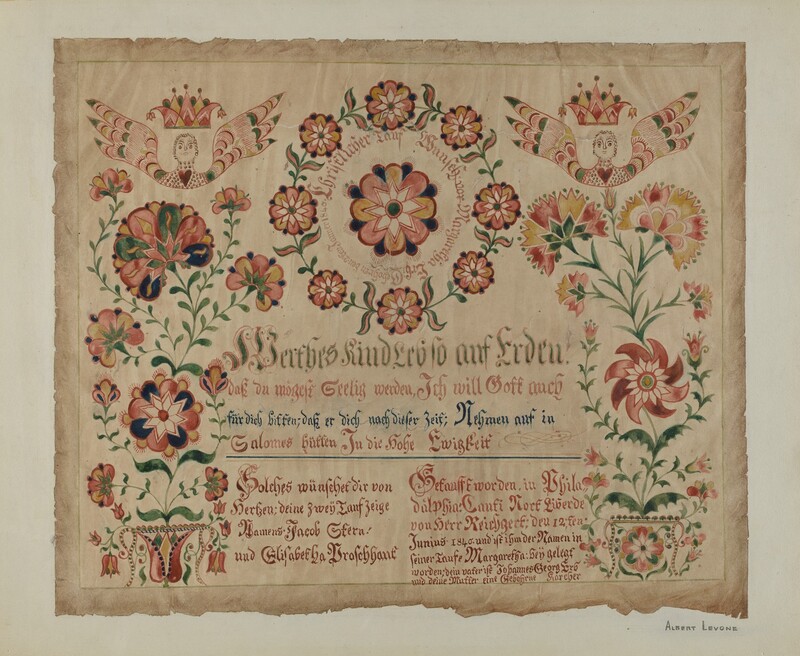 Christlicher Tauf Wunsch vor Margaretha
Werthes Kind Leb so auf Erden!
daß du mögest Seelig werden, Ich will Gott auch
für dich bitten; daß er dich nach dieser Zeit; Nehmen auf in
Salomes hütten In die Hohe Ewigkeit
Solches wünschet dir von
Hertzen; deine zwey Tauf zeige
Namens. Jacob Stern.
und Elisabetha Proschhaut
Getauft worden, in Phila
dälphia: Canti Nort
von Herr Reichgert; den 12.ten
Junius und ist ihm der Namen in
seiner Taufe Margaretha: bey gelegt
worden; dein vater ist Johannes Georg
und deine Mutter eine Karcher
ALBERT LEVONE